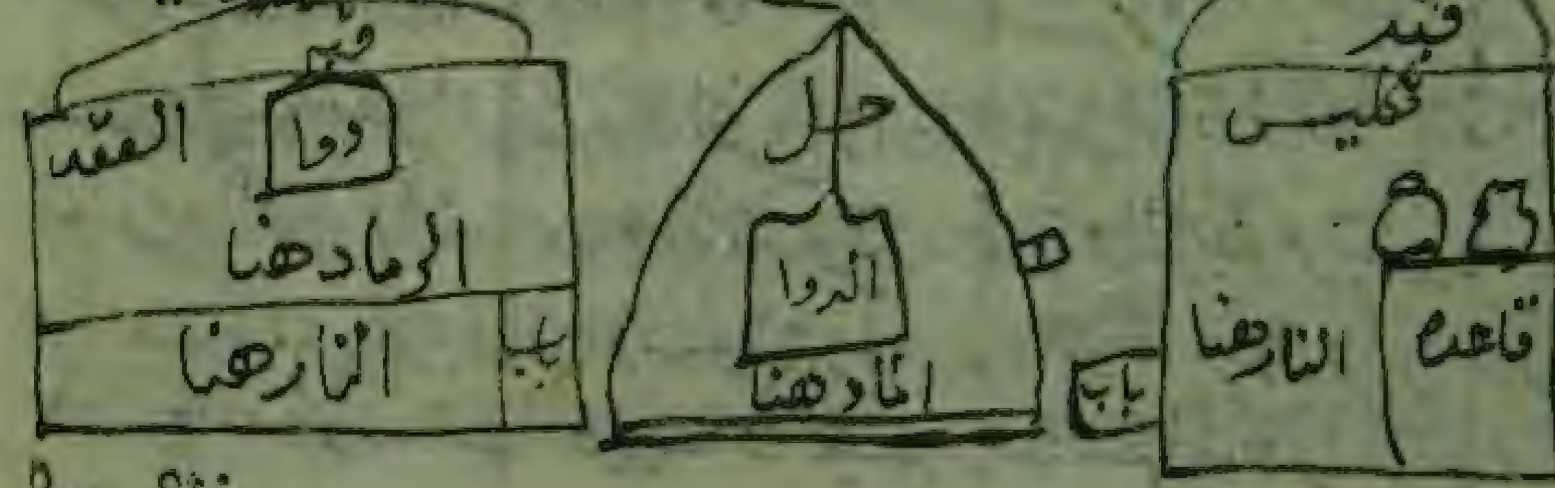 قبه
تكليس
النار هنا
قاعده
باب
حل
الدوا
الما هنا
قبه
دوا
العقد
الرماد هنا
النار هنا
باب